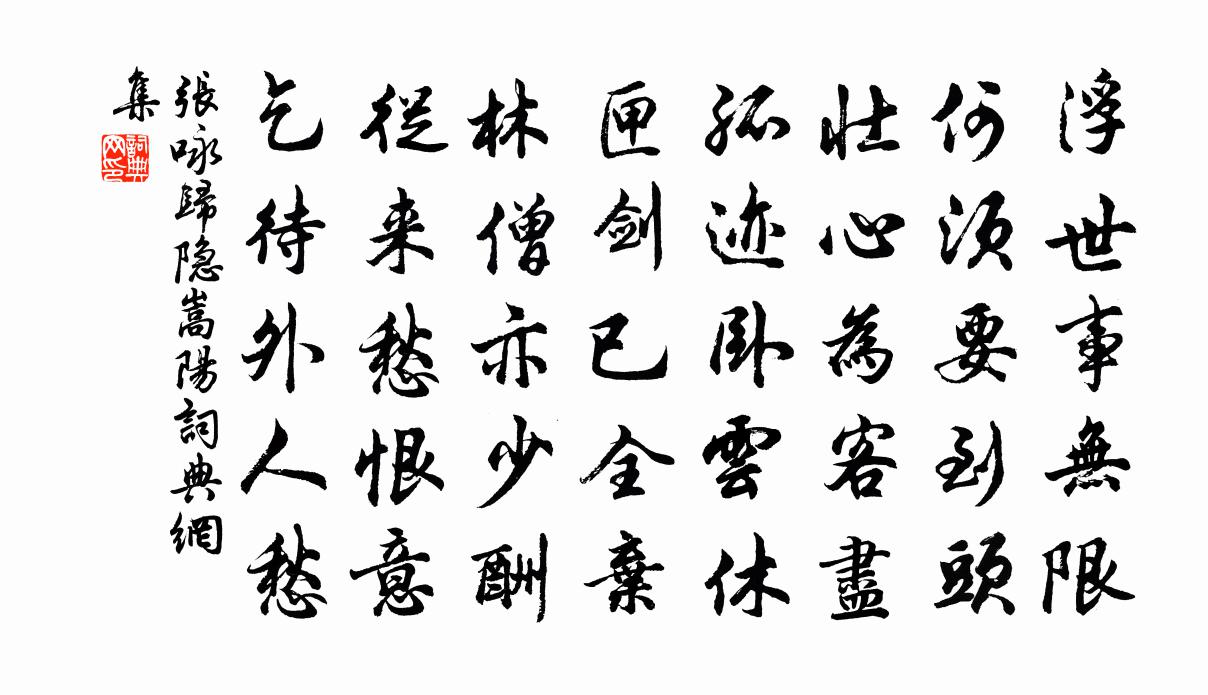 浮世事無限
何須要到頭
壮心為客盡
孤迹卧雲休
匣剑已全棄
林僧亦少酬
從来愁恨意
乞待外人愁
張咏歸隐嵩陽詞典網
集
詞典
网印